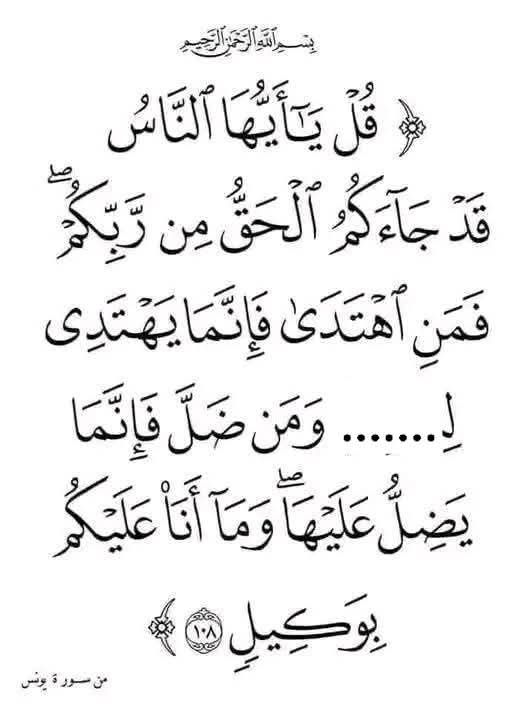 بِسْمِ ٱللَّهِ ٱلرَّحْمَٰنِ ٱلرَّحِيمِ
﴿ قُلْ يَـٰٓأَيُّهَا ٱلنَّاسُ
قَدْ جَآءَكُمُ ٱلْحَقُّ مِن رَّبِّكُمْ ۖ
فَمَنِ ٱهْتَدَىٰ فَإِنَّمَا يَهْتَدِى
لِـ....... وَمَن ضَلَّ فَإِنَّمَا
يَضِلُّ عَلَيْهَا ۖ وَمَآ أَنَا۠ عَلَيْكُم
بِوَكِيلٍ ١٠٨ ﴾
من سورة يونس